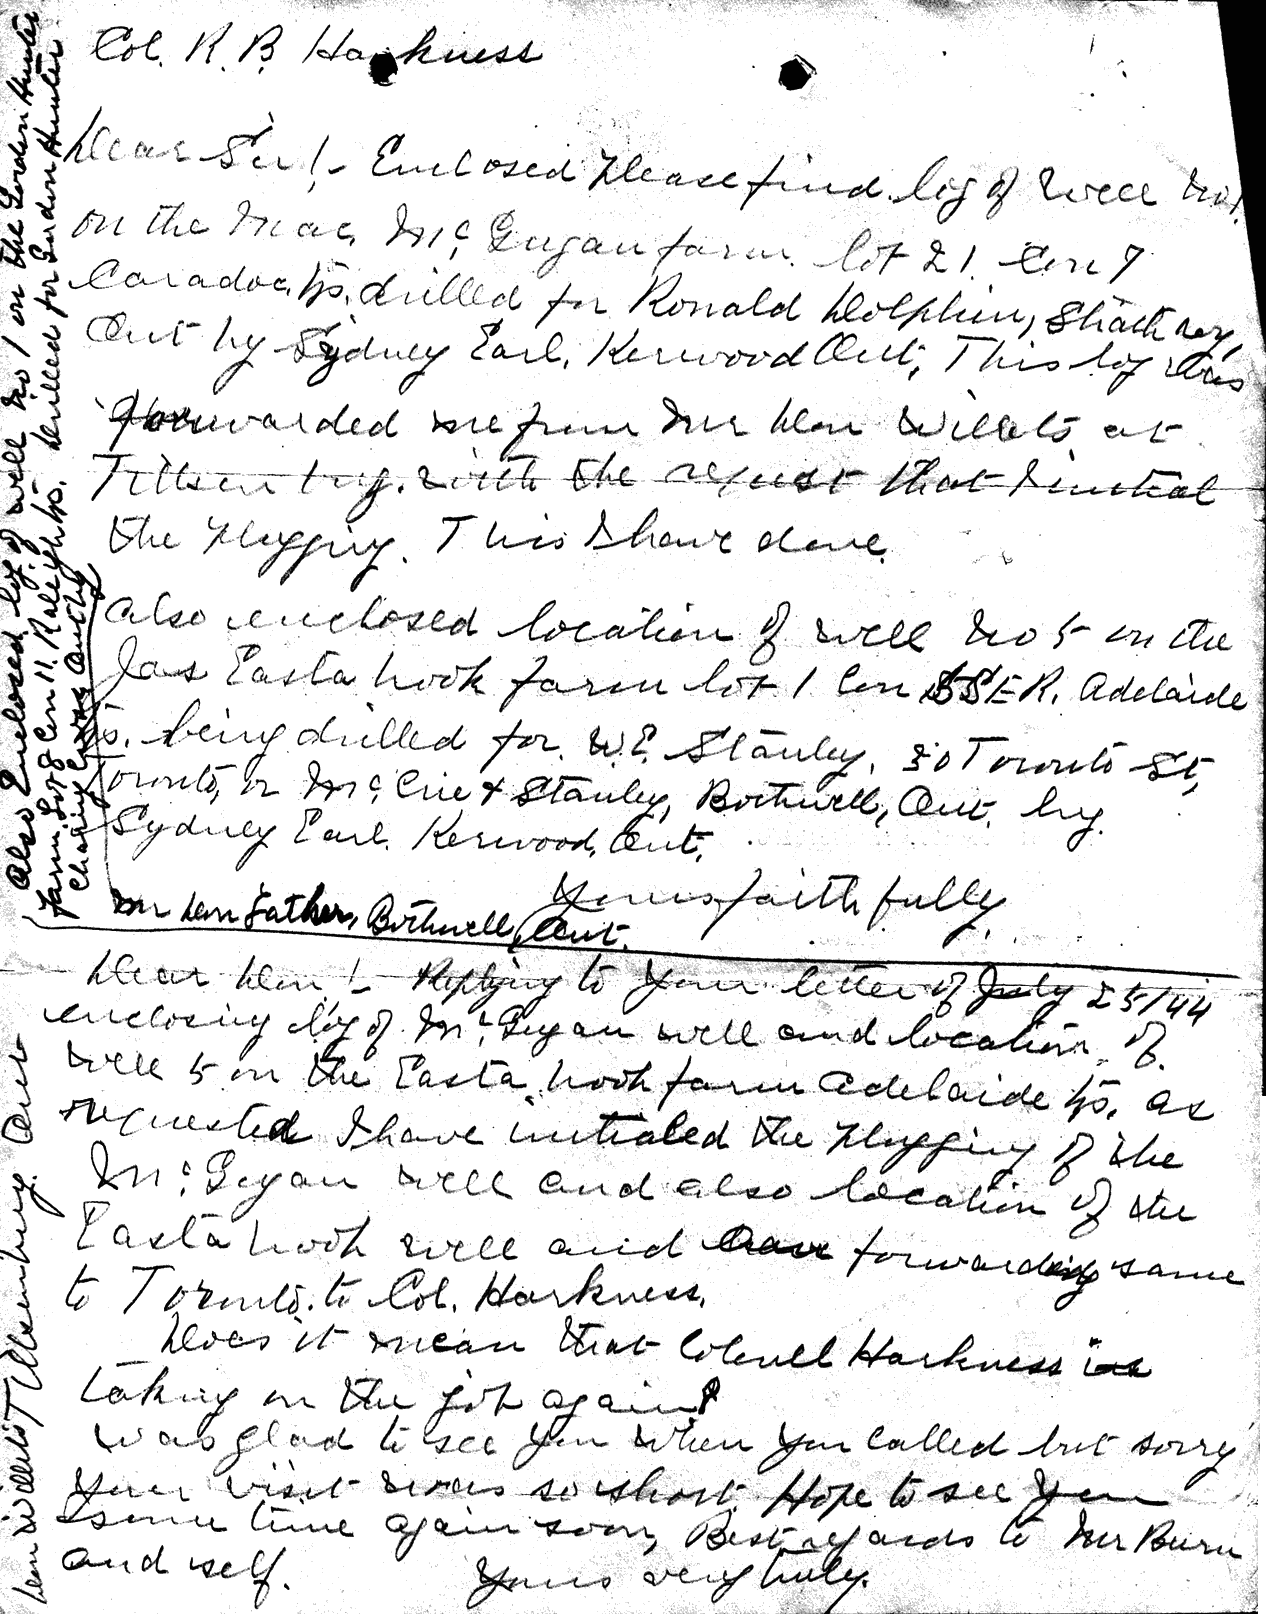 Col. R. B. Harkness
Dear Sir!- Enclosed please find log of well No 1.
on the Mac. McGugan farm. lot 21. Con 7
Caradoc Tp. drilled for Ronald Dolphin, Strathroy,
Ont by Sydney Earl, Kerwood Ont, This log was
forwarded me from Mr Len Willets at
Tillsonburg. with the request that I initial
the plugging. This I have done.
Also enclosed location of well No 5 on the
Jas Eastabrook farm lot 1 Con 5 SER. Adelaide
Tp. being drilled for W.E. Stanley. 30 Toronto St,
Toronto, or McCrie & Stanley, Bothwell, Ont. by.
Sydney Earl. Kerwood, Ont.
Yours faithfully,
Also Enclosed log of well No 1 on the Gordon Hunter
farm, Lot 8 Con 11. Raleigh Tp. drilled for Gordon Hunter
Charing Cross Ont by
Mr Len Father, Bothwell, Ont.
Dear Len!- Replying to your letter of July 25/44
enclosing log of McGugan well and location of
well 5 on the Eastabrook farm Adelaide Tp. as
requested I have initialed the plugging of the
McGugan well and also location of the
Eastabrook well and forwarding same
to Toronto. to Col. Harkness.
Does it mean that Colonel Harkness is
taking on the job again?
Was glad to see you when you called but sorry
your visit was so short. Hope to see you
some time again soon, Best regards to Mr Burn
and self.
Yours very truly.
Len Willets Tillsonburg. Ont